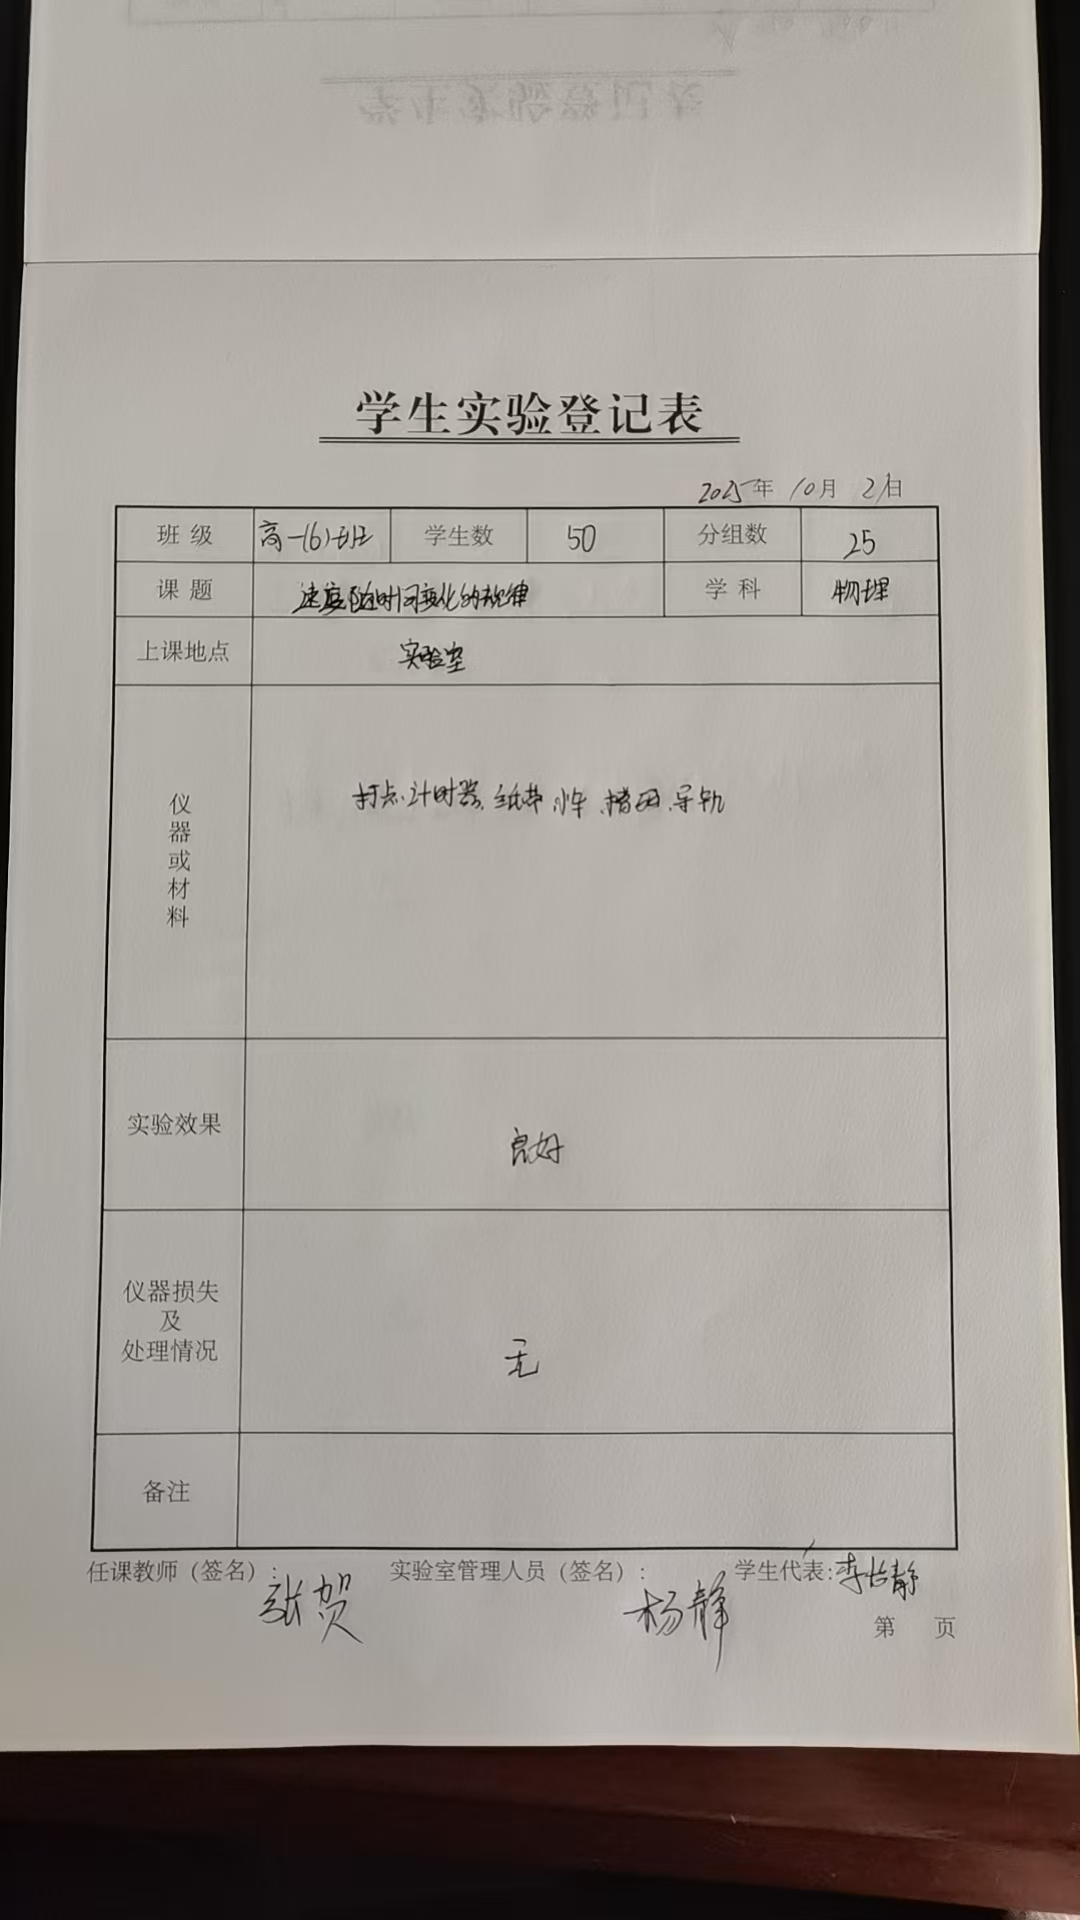 学生实验登记表
2025年 10月 21日
班 级 高一(6)班 学生数 50 分组数 25
课 题 速度随时间变化的规律 学 科 物理
上课地点 实验室
仪器或材料 打点计时器、纸带、小车、槽码、导轨
实验效果 良好
仪器损失
及
处理情况 无
备注
任课教师（签名）: 张贺 实验室管理人员（签名）: 杨静 学生代表: 李怡静
第 页